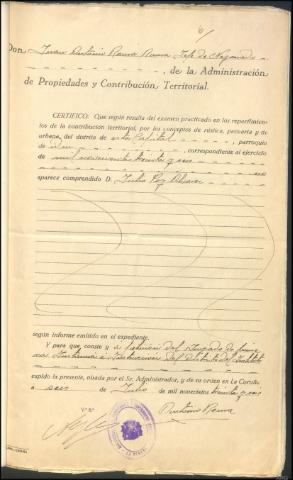 6
Don Juan Antonio Rama Rama Jefe de Negociado
de la Administración
de Propiedades y Contribución Territorial.
CERTIFICO: Que según resulta del examen practicado en los repartimien-
tos de la contribución territorial, por los conceptos de rústica, pecuaria y de
urbana, del distrito de esta Capital, parroquia
de idem, correspondiente al ejercicio
de mil novecientos treinta y seis no
aparece comprendido D. Julio
según informe emitido en el expediente.
Y para que conste y a petición del Juzgado de prime
ra Instancia e Instrucción del distrito del Instituto
expido la presente, visada por el Sr. Administrador, y de su orden en La Coruña
a seis de Julio de mil novecientos treinta y seis
V.º B.º
Antonio Rama